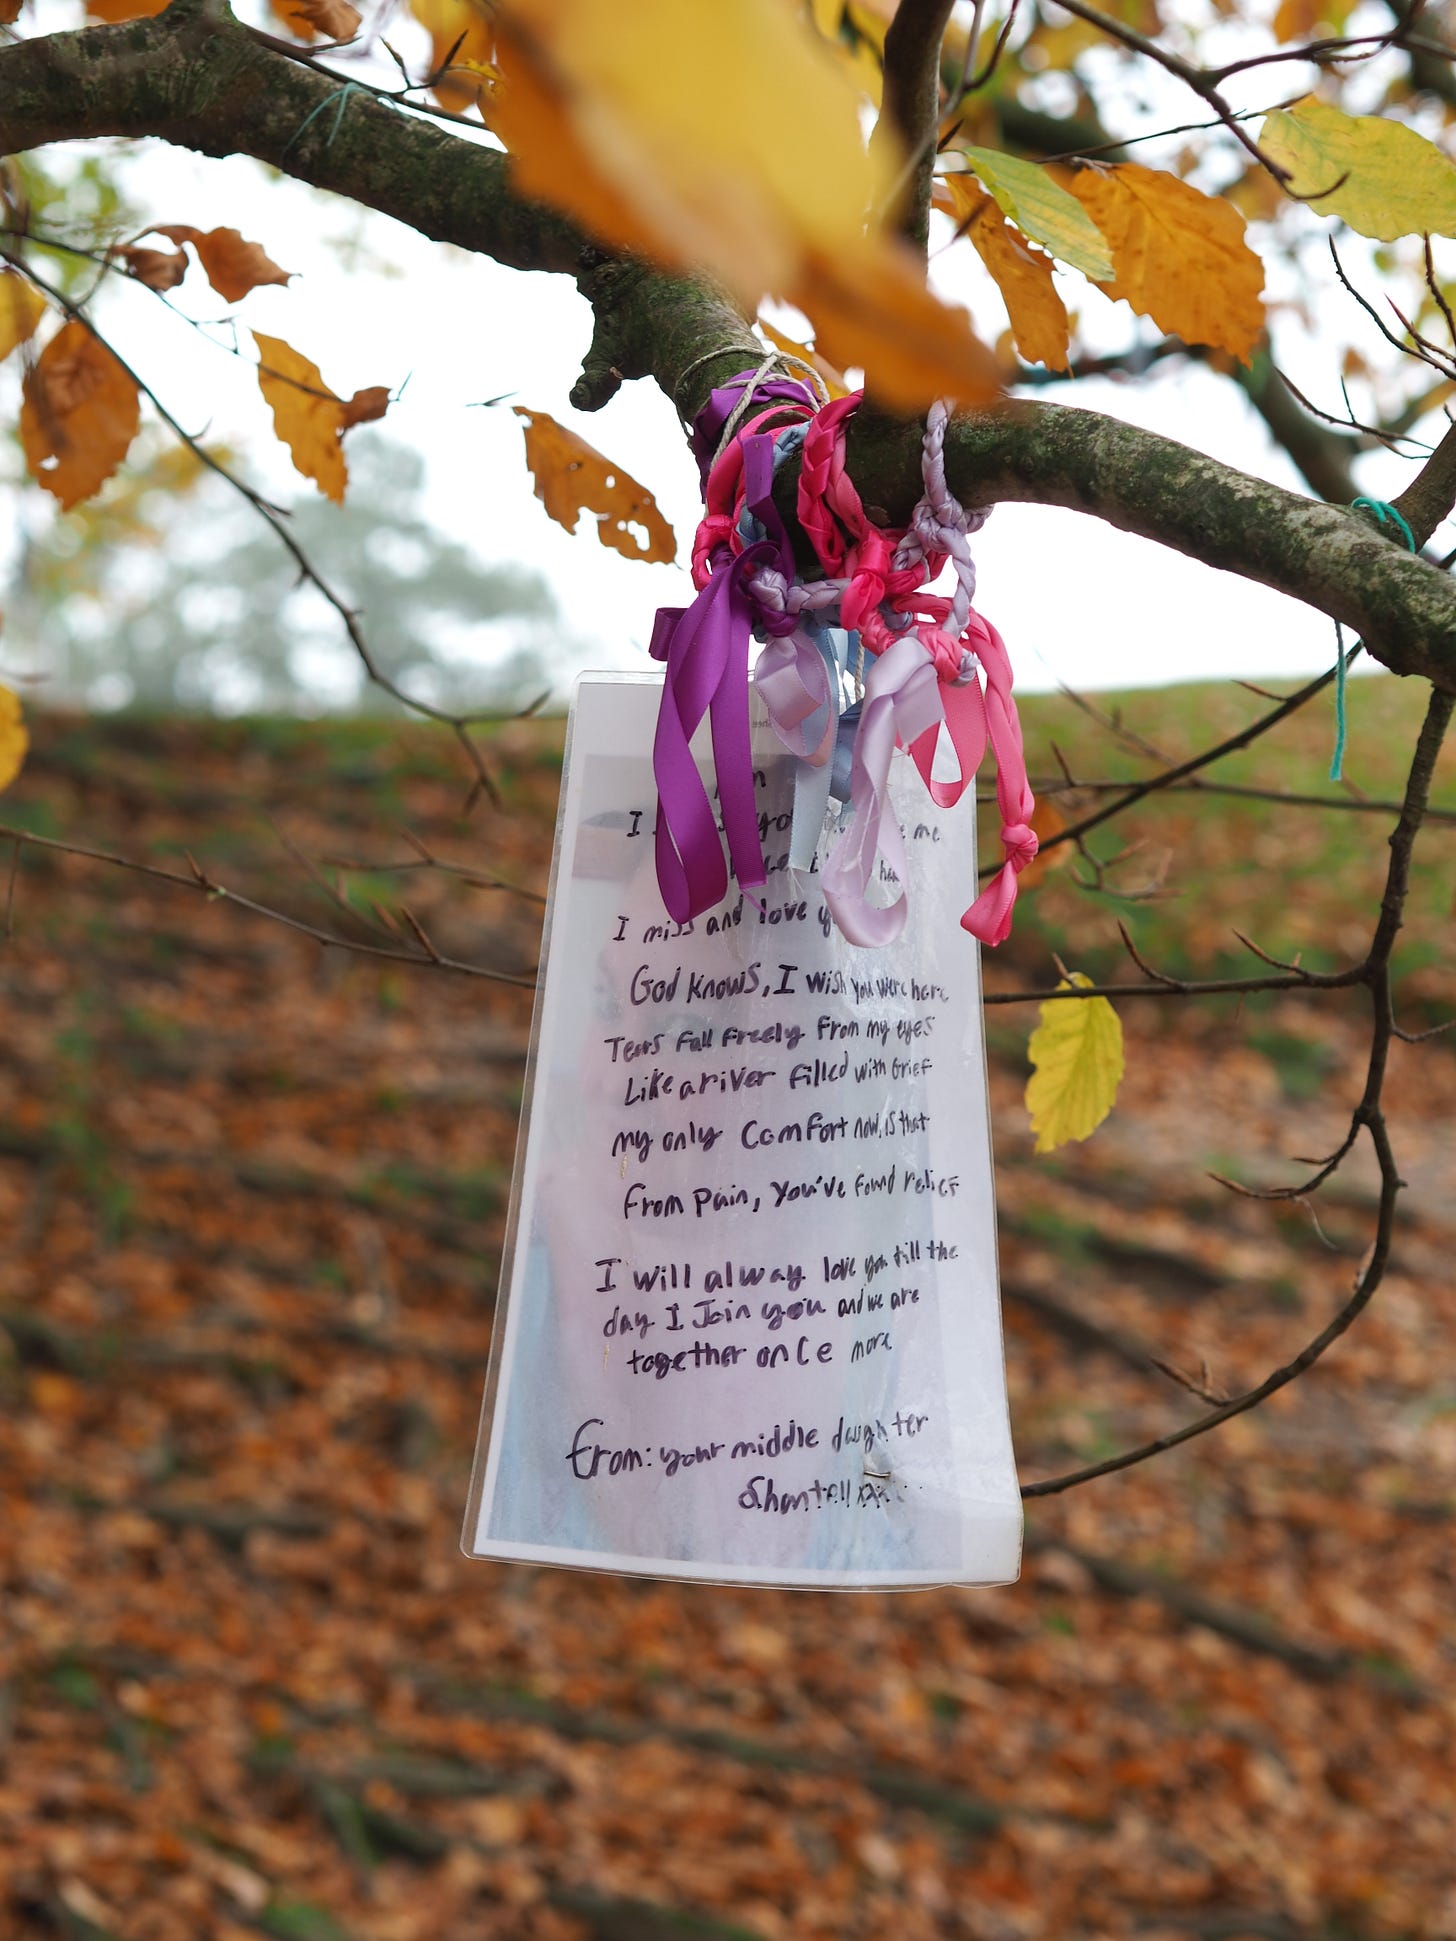 I me
I miss and love
God knows, I wish you were here
Tears fall freely from my eyes
Like a river filled with Grief
my only Comfort now, is that
from pain, you've found relief
I will alway love you till the
day I Join you and we are
together once more
From: your middle daughter
Shantell